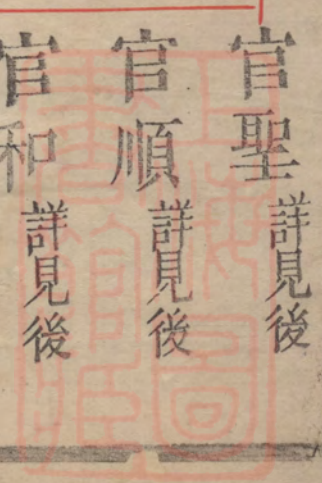 官聖詳見後
官順詳見後
官和詳見後